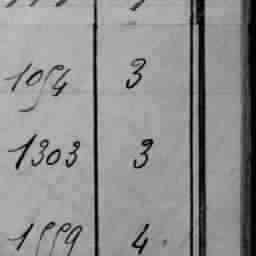 1054 3
1303 3
1559 4